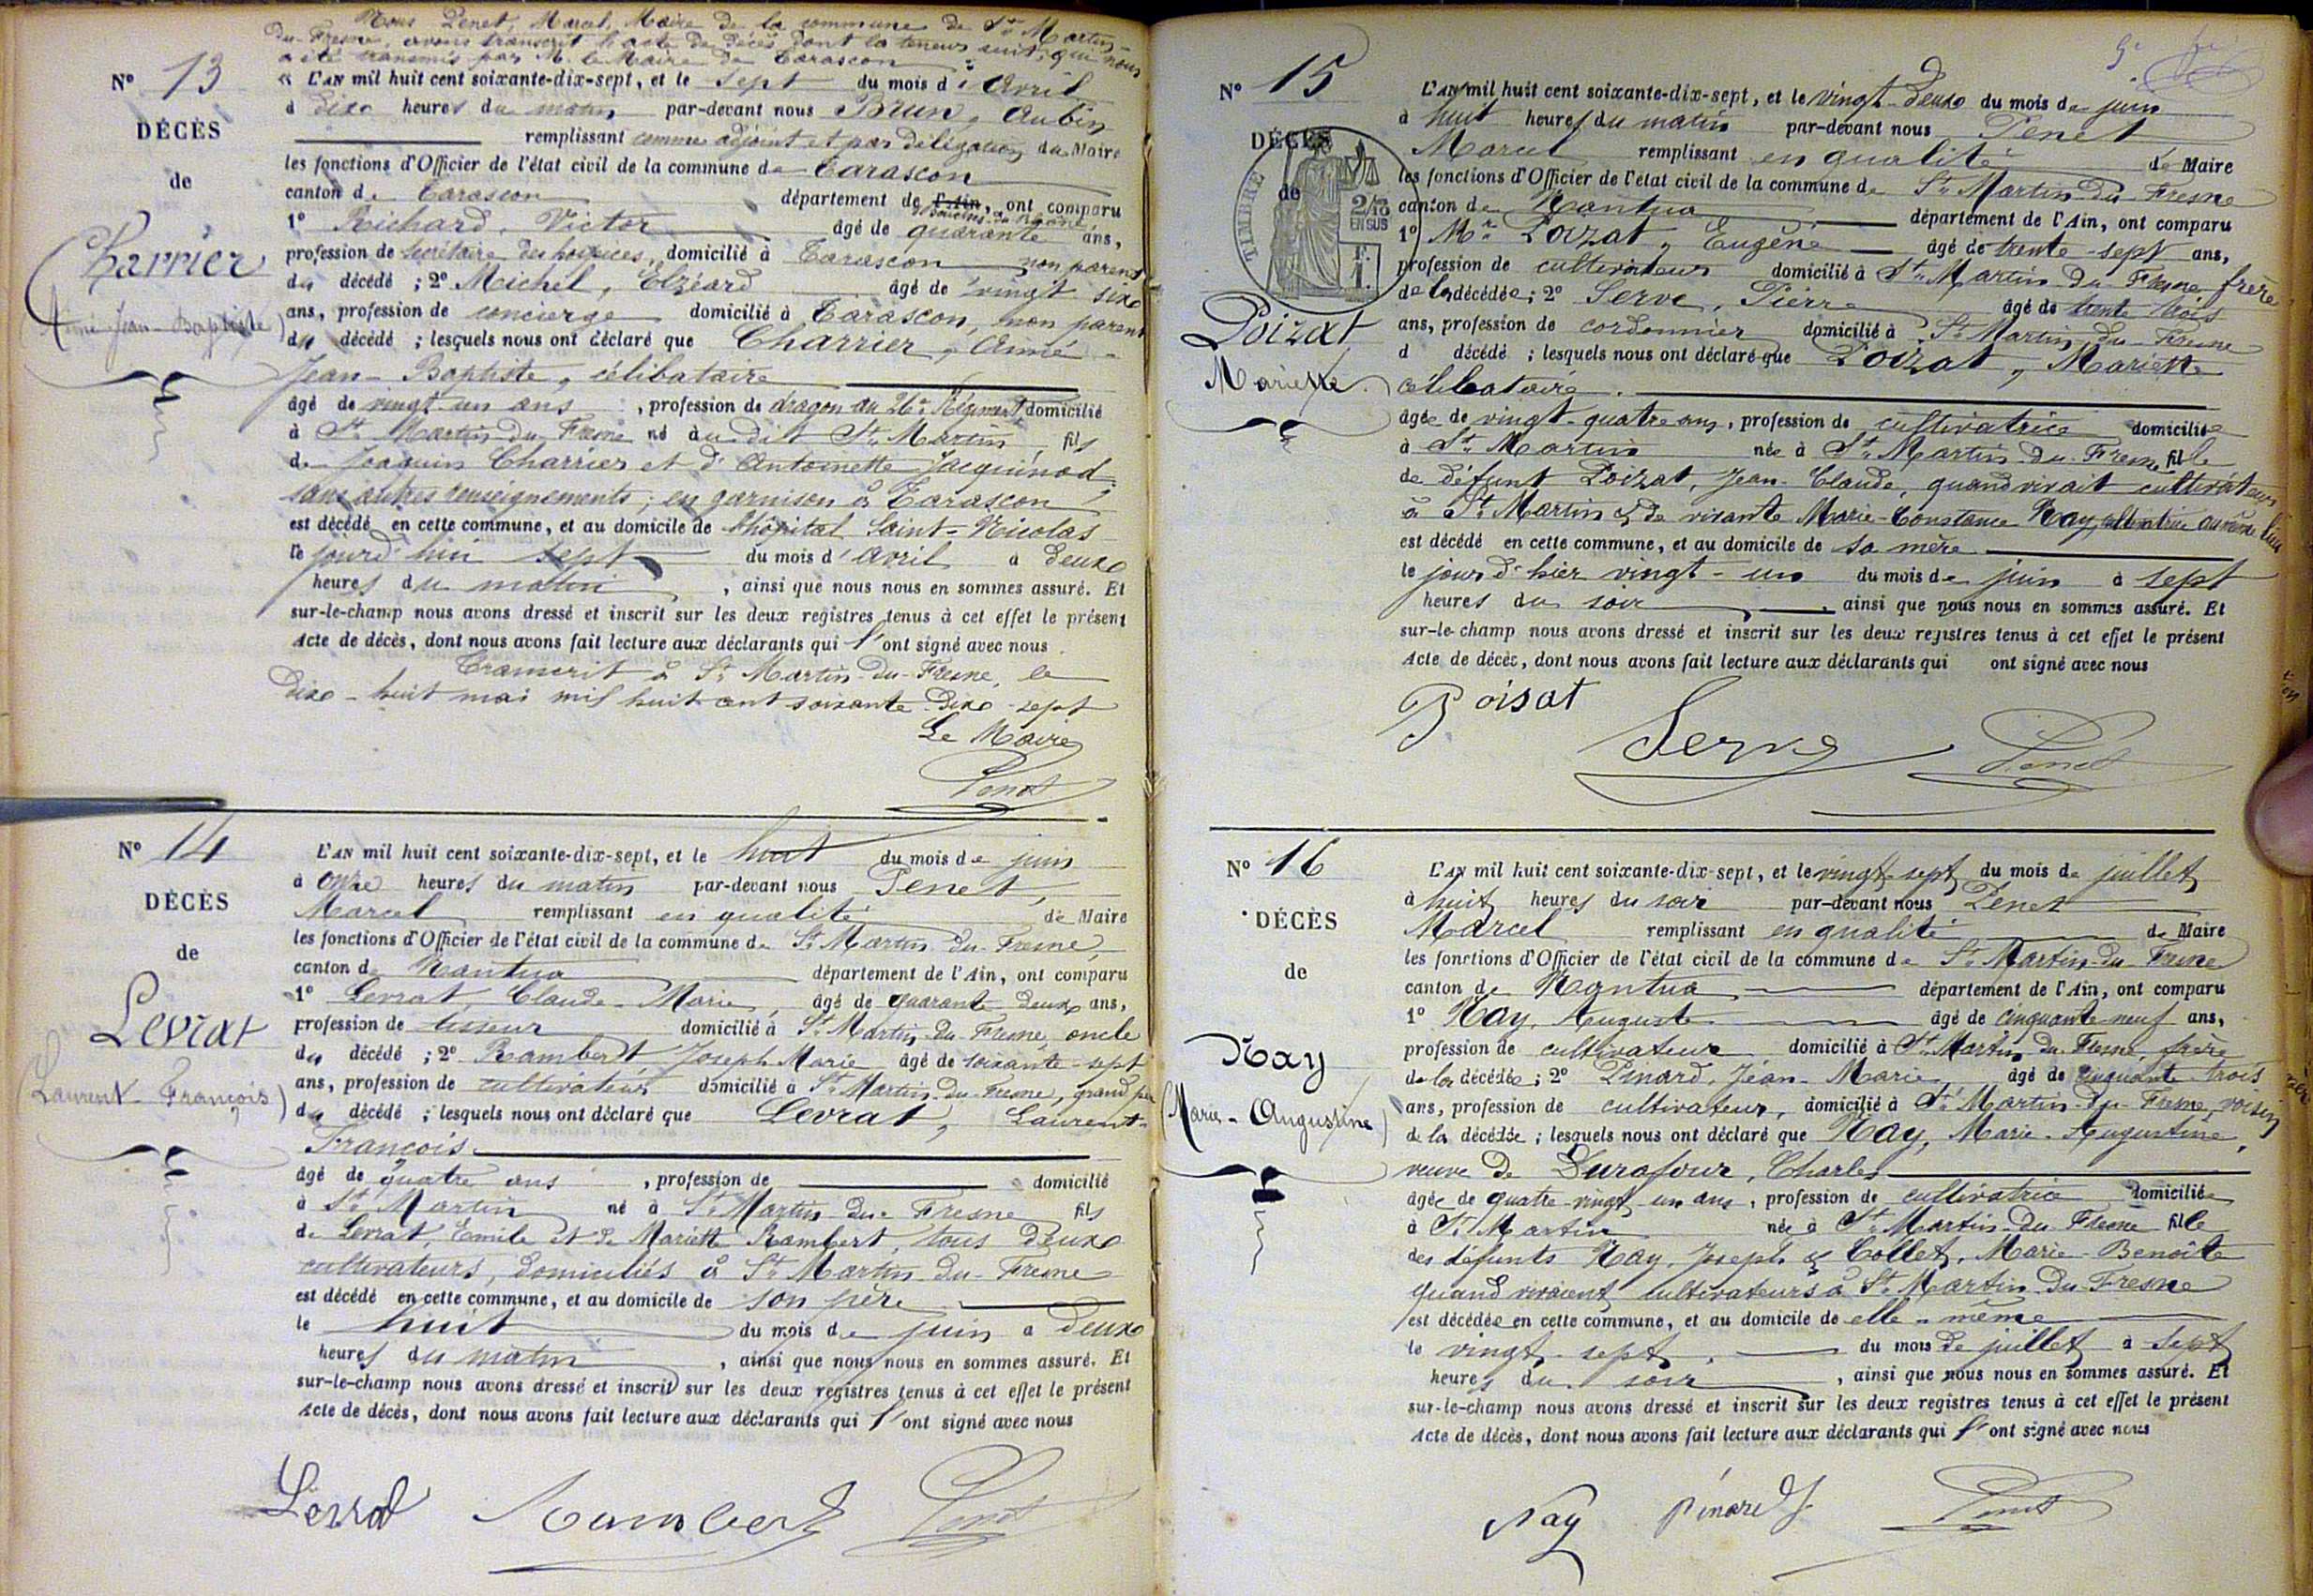 Nous Penet, Marcel, Maire de la commune de St Martin-
du-Fresne, avons transcrit l'acte de décès dont la teneur suit, qui nous
a été transmis par M. le Maire de Tarascon
N° 13
DÉCÈS
de
Charrier
Aimé-Jean-Baptiste)
« L'AN mil huit cent soixante-dix-sept, et le sept du mois d'avril
à dix heures du matin par-devant nous Brun, Aubin
remplissant comme adjoint et par délégation du Maire
les fonctions d'Officier de l'état civil de la commune de Tarascon
canton de Tarascon département de l'Ain, ont comparu
Bouches du Rhône
1° Richard, Victor âgé de quarante ans,
profession de secrétaire des hospices, domicilié à Tarascon non parent
du décédé ; 2° Michel, Elzéard âgé de vingt six
ans, profession de concierge domicilié à Tarascon, non parent
du décédé ; lesquels nous ont déclaré que Charrier, Aimé-
Jean-Baptiste, célibataire
âgé de vingt-un ans, profession de dragon au 26e Régiment, domicilié
à St Martin-du-Fresne né au dit St Martin, fils
de Joaquin Charrier et d'Antoinette Jacquinod,
sans autres renseignements ; en garnison à Tarascon
est décédé en cette commune, et au domicile de l'hôpital Saint-Nicolas
le jourd'hui sept du mois d'avril à deux
heures du matin, ainsi que nous nous en sommes assuré. Et
sur-le-champ nous avons dressé et inscrit sur les deux registres tenus à cet effet le présent
Acte de décès, dont nous avons fait lecture aux déclarants qui l'ont signé avec nous
Transcrit à St Martin-du-Fresne, le
dix-huit mai mil huit cent soixante-dix-sept
Le Maire
Penet
N° 14
DÉCÈS
de
Levrat
Laurent-François)
L'AN mil huit cent soixante-dix-sept, et le huit du mois de juin
à onze heures du matin par-devant nous Penet,
Marcel remplissant en qualité de Maire
les fonctions d'Officier de l'état civil de la commune de St Martin-du-Fresne,
canton de Nantua département de l'Ain, ont comparu
1° Levrat, Claude-Marie, âgé de quarante-deux ans,
profession de tisseur domicilié à St Martin-du-Fresne, oncle
du décédé ; 2° Rambert, Joseph Marie âgé de soixante-sept
ans, profession de cultivateur domicilié à St Martin-du-Fresne, grand père
du décédé ; lesquels nous ont déclaré que Levrat, Laurent-
François
âgé de quatre ans, profession de domicilié
à St Martin né à St Martin-du-Fresne fils
de Levrat, Emile et de Mariette Rambert, tous deux
cultivateurs, domiciliés à St Martin-du-Fresne
est décédé en cette commune, et au domicile de son père
le huit du mois de juin à deux
heures du matin, ainsi que nous nous en sommes assuré. Et
sur-le-champ nous avons dressé et inscrit sur les deux registres tenus à cet effet le présent
Acte de décès, dont nous avons fait lecture aux déclarants qui l'ont signé avec nous
Levrat Rambert Penet
N° 15
DÉCÈS
de
TIMBRE
2/10 EN SUS
1 F.
Poizat
Mariette.)
L'AN mil huit cent soixante-dix-sept, et le vingt-deux du mois de juin
à huit heures du matin par-devant nous Penet
Marcel remplissant en qualité de Maire
les fonctions d'Officier de l'état civil de la commune de St Martin-du-Fresne
canton de Nantua département de l'Ain, ont comparu
1° Mr Poizat, Eugène âgé de trente-sept ans,
profession de cultivateur domicilié à St Martin-du-Fresne frère
de la décédée ; 2° Serve, Pierre âgé de trente trois
ans, profession de cordonnier domicilié à St Martin-du-Fresne
d décédé ; lesquels nous ont déclaré que Poizat, Mariette
célibataire.
âgée de vingt-quatre ans, profession de cultivatrice domiciliée
à St Martin née à St Martin-du-Fresne fille
de défunt Poizat, Jean-Claude, quand vivait cultivateur
à St Martin & de vivante Marie-Constance Nay, cultivatrice au même lieu
est décédé en cette commune, et au domicile de sa mère
le jour d'hier vingt-un du mois de juin à sept
heures du soir, ainsi que nous nous en sommes assuré. Et
sur-le-champ nous avons dressé et inscrit sur les deux registres tenus à cet effet le présent
Acte de décès, dont nous avons fait lecture aux déclarants qui ont signé avec nous
Poisat Serve Penet
N° 16
DÉCÈS
de
Nay
(Marie-Augustine)
L'AN mil huit cent soixante-dix-sept, et le vingt-sept du mois de juillet
à huit heures du soir par-devant nous Penet
Marcel remplissant en qualité de Maire
les fonctions d'Officier de l'état civil de la commune de St Martin-du-Fresne
canton de Nantua département de l'Ain, ont comparu
1° Nay, Auguste âgé de cinquante-neuf ans,
profession de cultivateur domicilié à St Martin-du-Fresne, frère
de la décédée ; 2° Pinard, Jean-Marie âgé de cinquante-trois
ans, profession de cultivateur, domicilié à St Martin-du-Fresne, voisin
de la décédée ; lesquels nous ont déclaré que Nay, Marie-Augustine,
veuve de Durafour, Charles
âgée de quatre-vingt-un ans, profession de cultivatrice domiciliée
à St Martin née à St Martin-du-Fresne fille
des défunts Nay, Joseph & Collet, Marie-Benoîte
quand vivaient cultivateurs à St Martin-du-Fresne
est décédée en cette commune, et au domicile de elle-même
le vingt-sept du mois de juillet à sept
heures du soir, ainsi que nous nous en sommes assuré. Et
sur-le-champ nous avons dressé et inscrit sur les deux registres tenus à cet effet le présent
Acte de décès, dont nous avons fait lecture aux déclarants qui l'ont signé avec nous
Nay Pinard Penet